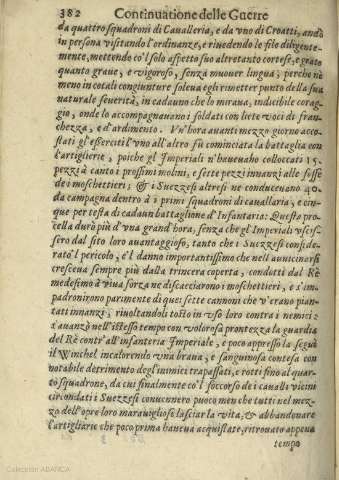 382 Continuatione delle Guerre
da quattro squadroni di Cavalleria, e da uno di Croatti, andò
in persona visitando l'ordinanze, e rivedendo le file diligente-
mente, mettendo co'l solo aspetto suo altretanto cortese, e grato
quanto grave, e vigoroso, senza muover lingua; perche nè
meno in cotali congiunture soleva egli rimetter punto della sua
naturale severità, in cadauno che lo mirava, indicibile corag-
gio, onde lo accompagnavano i soldati con liete voci di fran-
chezza, e d'ardimento. Un'hora avanti mezzo giorno acco-
stati gl'eserciti l'uno all'altro fù cominciata la battaglia con
l'artiglierie, poiche gl'Imperiali n'havevano colloccati 15.
pezzi à canto i prossimi molini, e sette pezzi innanzi alle fosse
de i moschettieri; & i Suezzesi altresi ne conducevano 40.
da campagna dentro à i primi squadroni di cavallaria, e cin-
que per testa di cadaun battaglione d'Infantaria: Questa pro-
cella durò più d'una grand'hora, senza che gl'Imperiali uscis-
sero dal sito loro avantaggioso, tanto che i Suezzesi conside-
rato'l pericolo, e'l danno importantissimo che nell'avvicinarsi
cresceva sempre più dalla trincera coperta, condotti dal Rè
medesimo à viva forza ne discacciarono i moschettieri, e s'im-
padronirono parimente di quei sette cannoni che v'erano pian-
tati innanzi; rivoltandoli tosto in uso loro contra i nemici:
s'avanzò nell'istesso tempo con volorosa prontezza la guardia
del Rè contr'all'infanteria Imperiale, e poco appresso la seguì
il Winchel incalorendo una brava, e sanguinosa contesa con
notabile detrimento degl'inimici trapassati, e rotti sino al quar-
to squadrone, da cui finalmente co'l soccorso de i cavalli vicini
circondati i Suezzesi convennero puoco men che tutti nel mez-
zo dell'opre loro maravigliose lasciar la vita, & abbandonare
l'artigliarie che poco prima haveva acquistate, ritrovato appena
tempo
Colección ABANCA